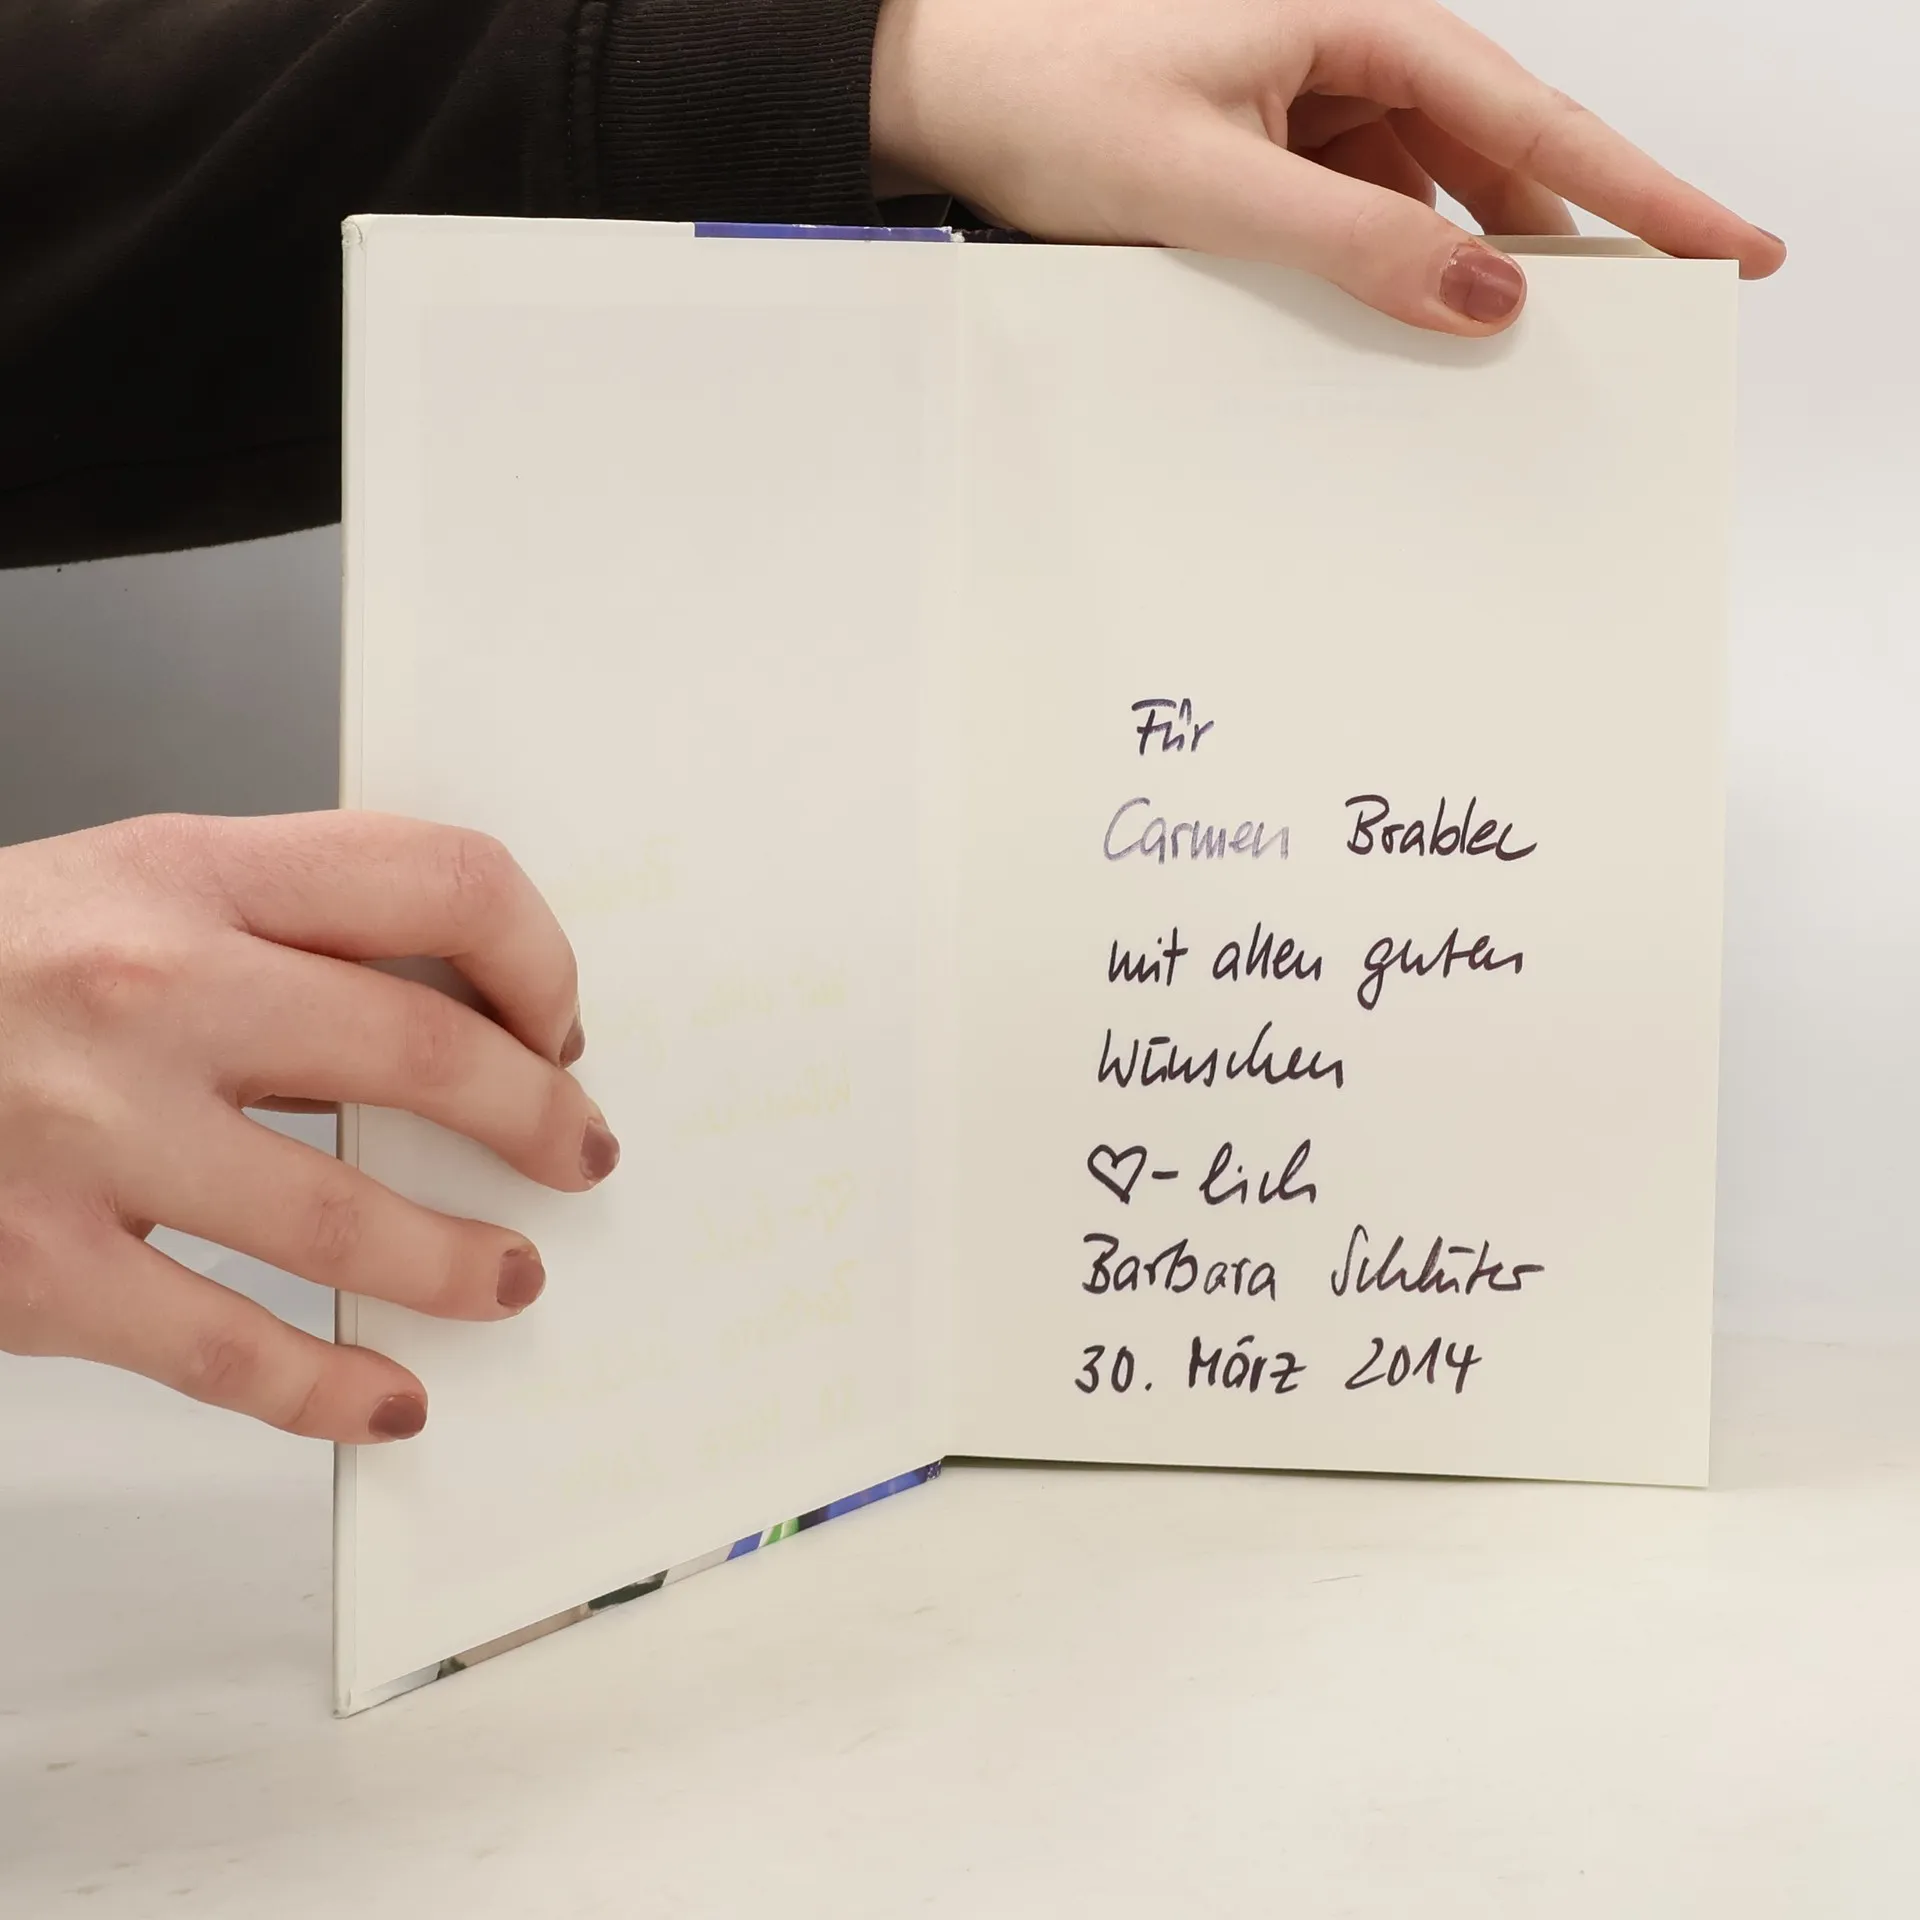 Für
Carmen Brablec
mit allen guten
Wünschen
♡-lich
Barbara Schlüter
30. März 2014